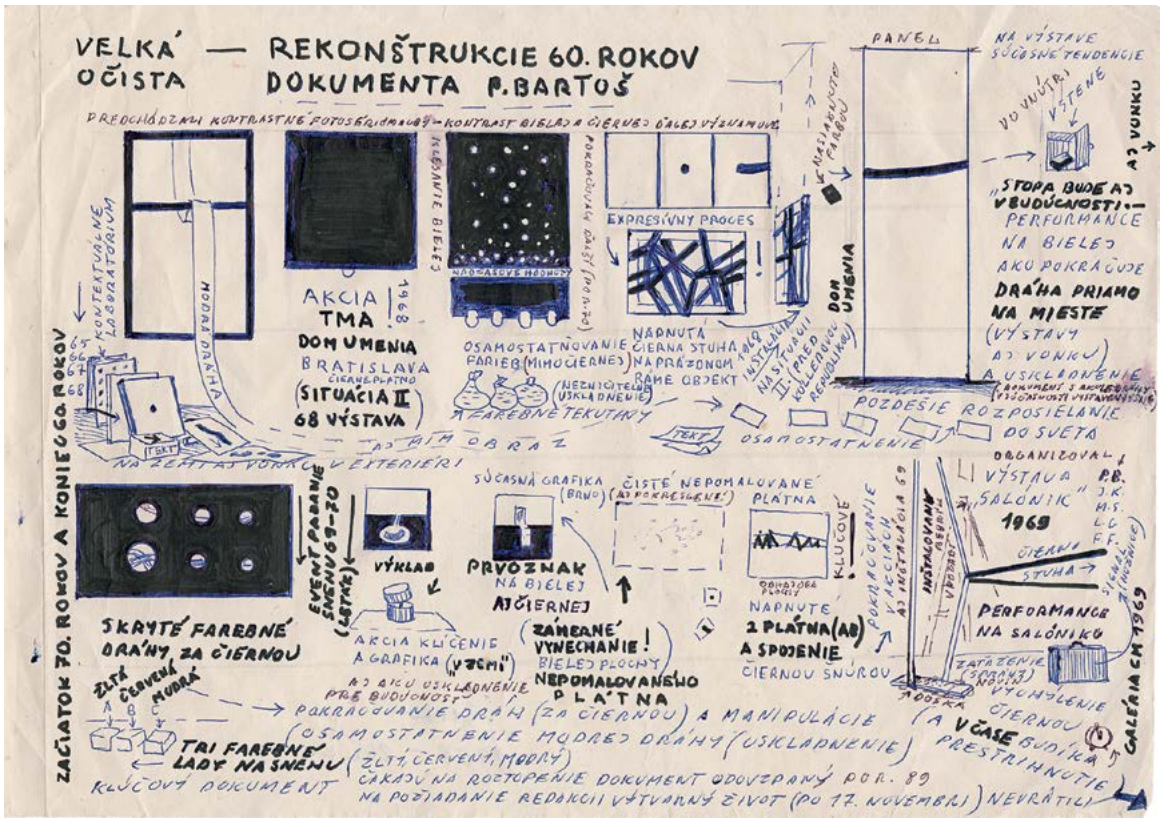 VELKÁ — REKONŠTRUKCIE 60. ROKOV
OČISTA DOKUMENTA P. BARTOŠ
PREDCHÁDZALI KONTRASTNÉ FOTOSÉRIE MAĽBY – KONTRAST BIELEJ A ČIERNEJ ĎALEJ VÝZNAMOVÉ
KONTEXTUÁLNE
LABORATÓRIUM
65
66
67
68
MODRÁ DRÁHA
TEXT
NA ZEMI AJ VONKU V EXTERIÉRI
AJ MIM OBRAZ
AKCIA
TMA !
1968
DOM UMENIA
BRATISLAVA
ČIERNE PLATNO
(SITUÁCIA II
68 VÝSTAVA)
KLESANIE BIELEJ
NADČASOVÉ HODNOTY
POKRAČOVALI ĎALŠÍ (POR. 70)
OSAMOSTATŇOVANIE
FARIEB (MIMO ČIERNEJ)
(NEZNIČITEĽNÉ
USKLADNENIE)
FAREBNÉ TEKUTINY
EXPRESÍVNY PROCES
!
NAPNUTÁ
ČIERNA STUHA
NA PRÁZDNOM
RÁME OBJEKT
1968
INŠTALÁCIA
NA SITUÁCII
II. (PRED
KOLLEROVOU
REPUBLIKOU)
K NASIAKNUTIE
FARBOU
DOM
UMENIA
PANEL
NA VÝSTAVE
SÚČASNÉ TENDENCIE
VO VNÚTRI
V STENE
AJ VONKU
„STOPA BUDE AJ
V BUDÚCNOSTI. –
PERFORMANCE
NA BIELEJ
AKO POKRAČUJE
DRÁHA PRIAMO
NA MIESTE
(VÝSTAVY
AJ VONKU)
A USKLADNENIE
POZDEŠIE ROZPOSIELANIE
DO SVETA
TEXT
OSAMOSTATNENIE
ZAČIATOK 70. ROKOV A KONIEC 60. ROKOV
SKRYTÉ FAREBNÉ
DRÁHY ZA ČIERNOU
EVENT PADANIE
SNEHU 69–70
(LETÁK)
VÝKLAD
AKCIA KLÍČENIE
A GRAFIKA („V ZEMI“)
AJ AKO USKLADNENIE
PRE BUDÚCNOSŤ
SÚČASNÁ GRAFIKA
(BRNO)
PRVOZNAK
NA BIELEJ
AJ ČIERNEJ
ČISTÉ NEPOMALOVANÉ
(AJ POKRESLENÉ)
PLÁTNA
(ZÁMERNÉ
VYNECHANIE!
BIELEJ PLOCHY
NEPOMALOVANÉHO
PLÁTNA
OBHAJOBA
PLOCHY
KLÚČOVÉ
NAPNUTÉ
2 PLÁTNA (AB)
A SPOJENIE
ČIERNOU ŠNÚROU
POKRAČOVANIE
V AKCIÁCH
AJ INŠTALÁCIA 69
INŠTALOVANÉ
DOSKA
ORGANIZOVAL
VÝSTAVA
„SALÓNIK“
1969
P.B.
J.K.
M.S.
L.G.
F.F.
ČIERNA
STUHA →
SIGNÁL
PERFORMANCE
NA SALÓNIKU
ZAŤAŽENIE
(SPRÁVA)
NOVÍN
VYCHÝLENIE
ČIERNOU
(A V ČASE BUDÍKA
PRESTRIHNUTIE)
GALÉRIA CM 1969
ŽLTÁ
ČERVENÁ
MODRÁ
A B C
POKRAČOVANIE DRÁH (ZA ČIERNOU) A MANIPULÁCIE
(OSAMOSTATNENIE MODREJ DRÁHY (USKLADNENIE)
TRI FAREBNÉ
LADY NA SNEHU (ŽLTÝ, ČERVENÝ, MODRÝ)
KLÚČOVÝ DOKUMENT ČAKAJÚ NA ROZTOPENIE DOKUMENT ODOVZDANÝ POR. 89
NA POŽIADANIE REDAKCII VÝTVARNÝ ŽIVOT (PO 17. NOVEMBRI) NEVRÁTILI